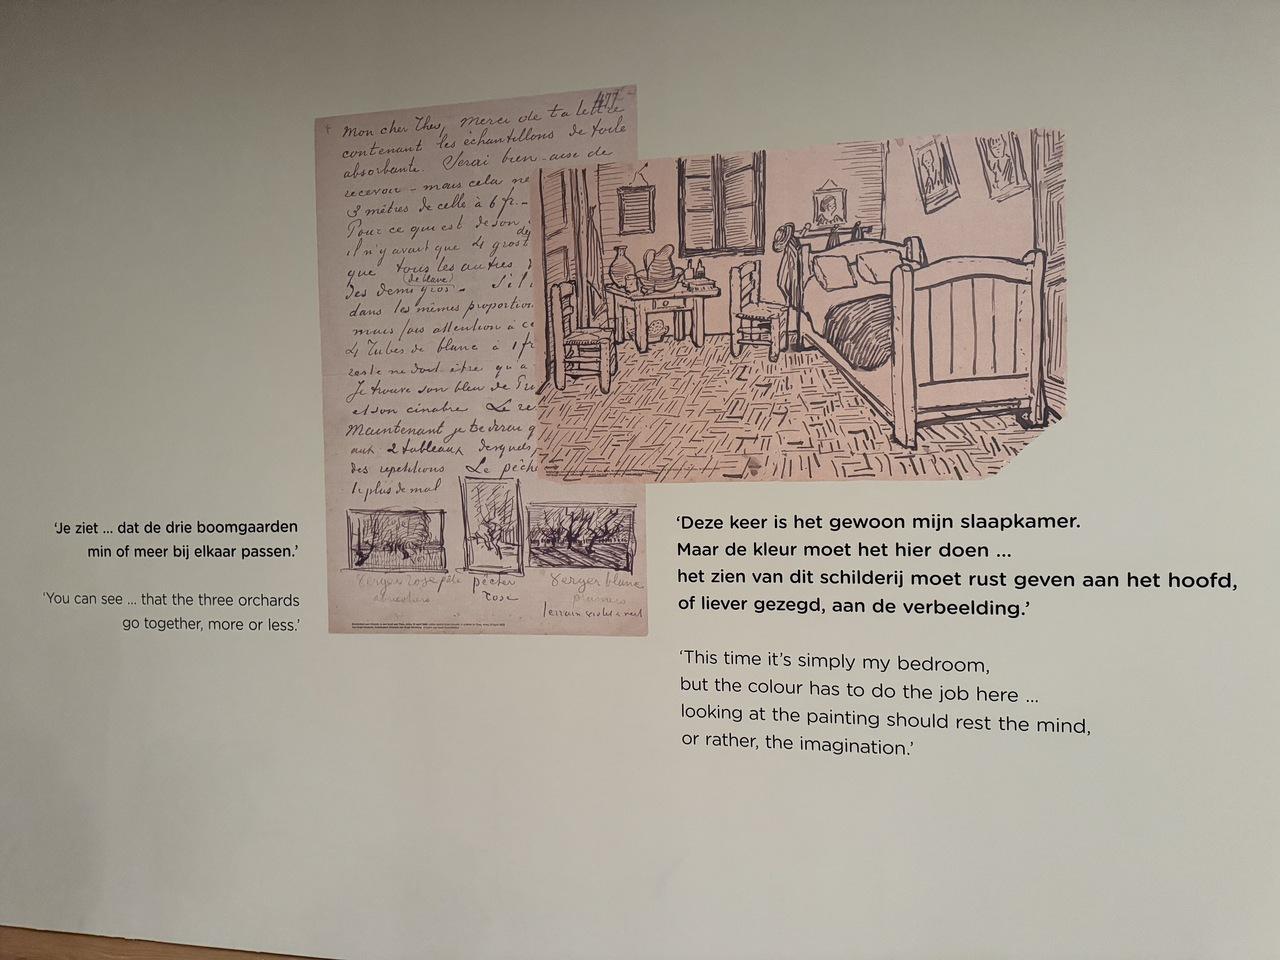 477
Mon cher Theo, Merci de ta lettre
contenant les échantillons de toile
absorbante. Serai bien aise de
recevoir – mais cela ne
3 mètres de celle à 6 fr. –
Pour ce qui est de son
il n'y avait que 4 gros t
que tous les autres d
(de blanc)
des demi gros – S'il
dans les mêmes proportion
mais fais attention à ce
4 Tubes de blanc à 1 fr
reste ne doit être qu a
Je trouve son bleu de Pru
et son cinabre
Maintenant je te dirai q
aux 2 tableaux desquels
des repetitions Le pêche
le plus de mal
Verger rose pâle
pêcher
rose
Verger blanc
terrain violet
'Je ziet ... dat de drie boomgaarden
min of meer bij elkaar passen.'
'You can see ... that the three orchards
go together, more or less.'
'Deze keer is het gewoon mijn slaapkamer.
Maar de kleur moet het hier doen ...
het zien van dit schilderij moet rust geven aan het hoofd,
of liever gezegd, aan de verbeelding.'
'This time it's simply my bedroom,
but the colour has to do the job here ...
looking at the painting should rest the mind,
or rather, the imagination.'